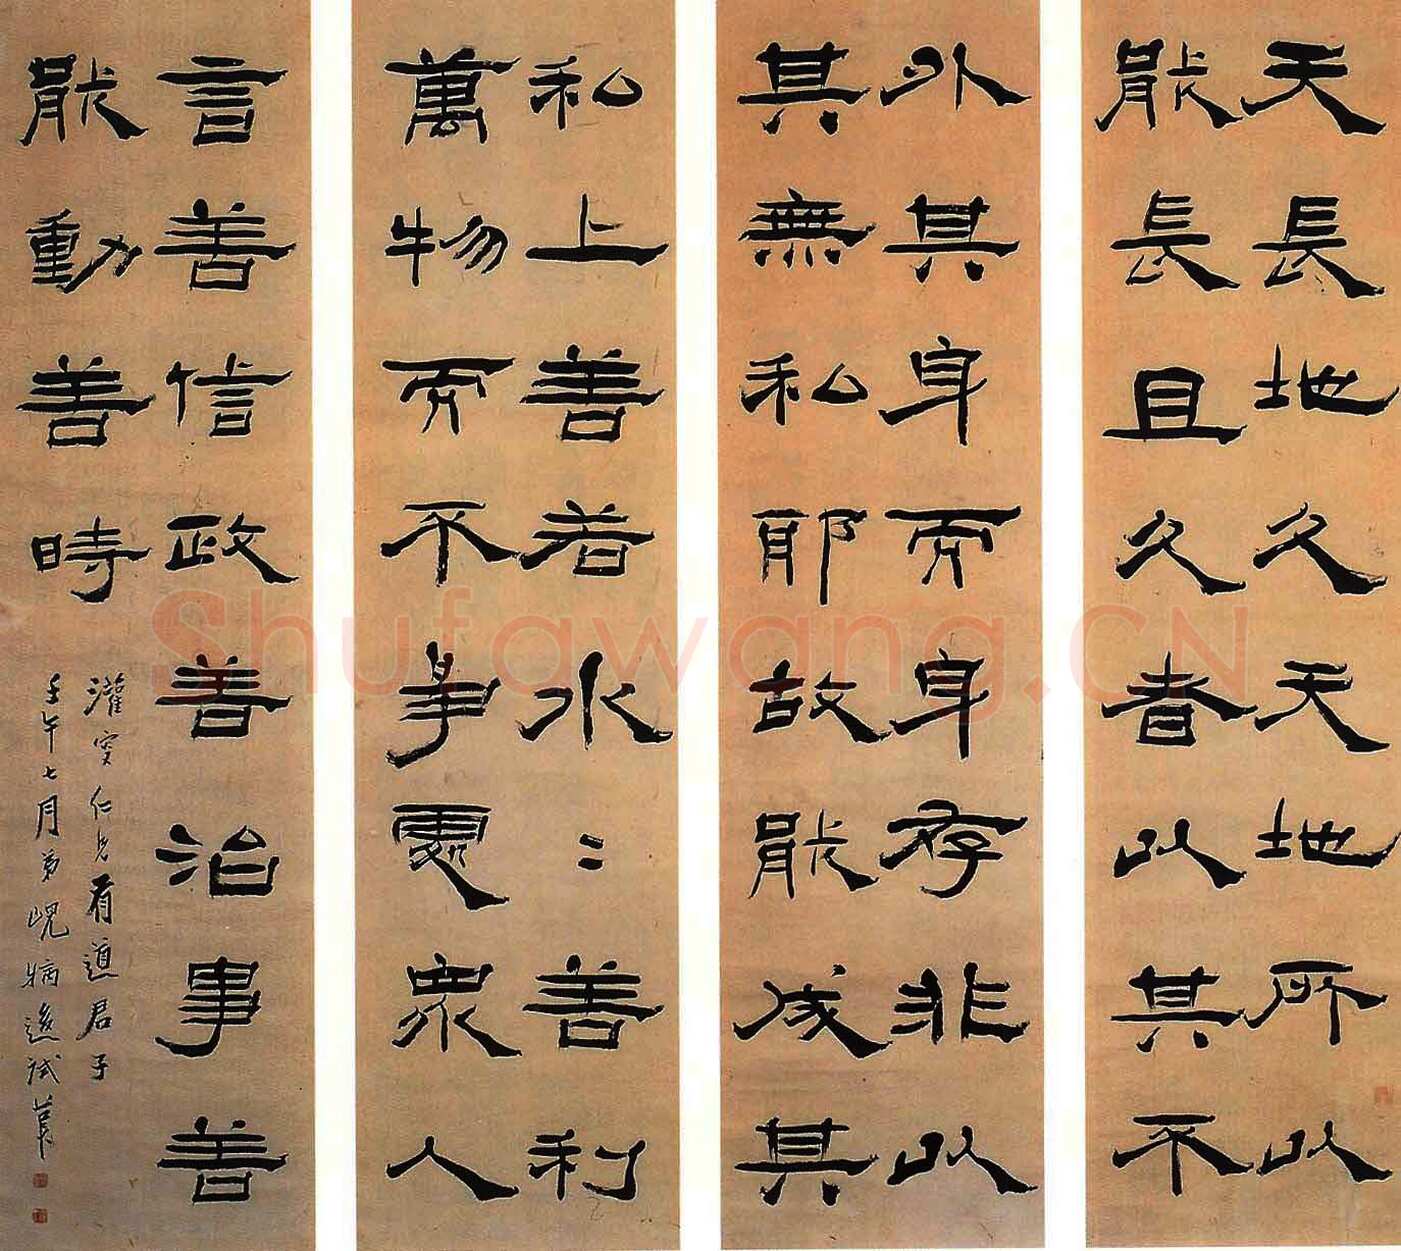 天長地久天地所以
能長且久者以其不
外其身而身存非以
其無私耶故能成其
私上善若水〻善利
萬物而不爭處眾人
言善信政善治事善
能動善時
灌叟仁兄有道君子
壬午七月弟峴病後試筆
Shufawang.CN